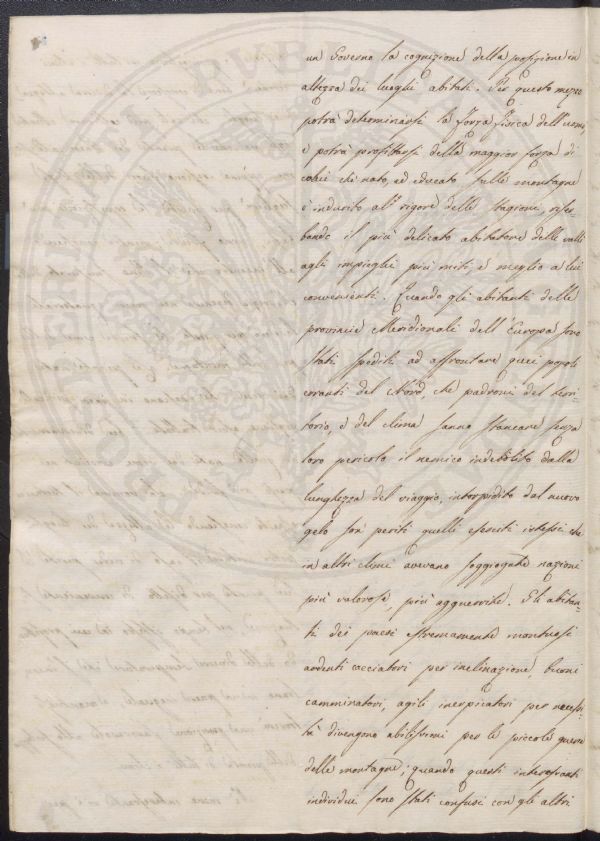 un Governo la cognizione della posizione in
altezza dei luoghi abitati. Per questo mezzo
potrà determinarsi la forza fisica dell'uomo,
e potrà profittarsi della maggior forza di
colui che nato, ed educato sulle montagne
è indurito al rigore delle stagioni, riser-
bando il più delicato abitatore delle valli
agli impieghi più miti, e meglio a lui
convenienti. Quando gli abitanti delle
provincie Meridionali dell'Europa sono
stati spediti ad affrontare quei popoli
erranti del Nord, che padroni del terri-
torio, e del clima sanno stancare senza
loro pericolo il nemico indebolito dalla
lunghezza del viaggio, intorpidito dal nuovo
gelo son periti quelli eserciti istessi che
in altri climi avevano soggiogate nazioni
più valorose, più agguerrite. Gli abitan-
ti dei paesi estremamente montuosi
ardenti cacciatori per inclinazione, buoni
camminatori, agili inerpicatori per necessi-
tà divengono abilissimi per le piccole guerre
delle montagne; quando questi interessanti
individui sono stati confusi con gli altri